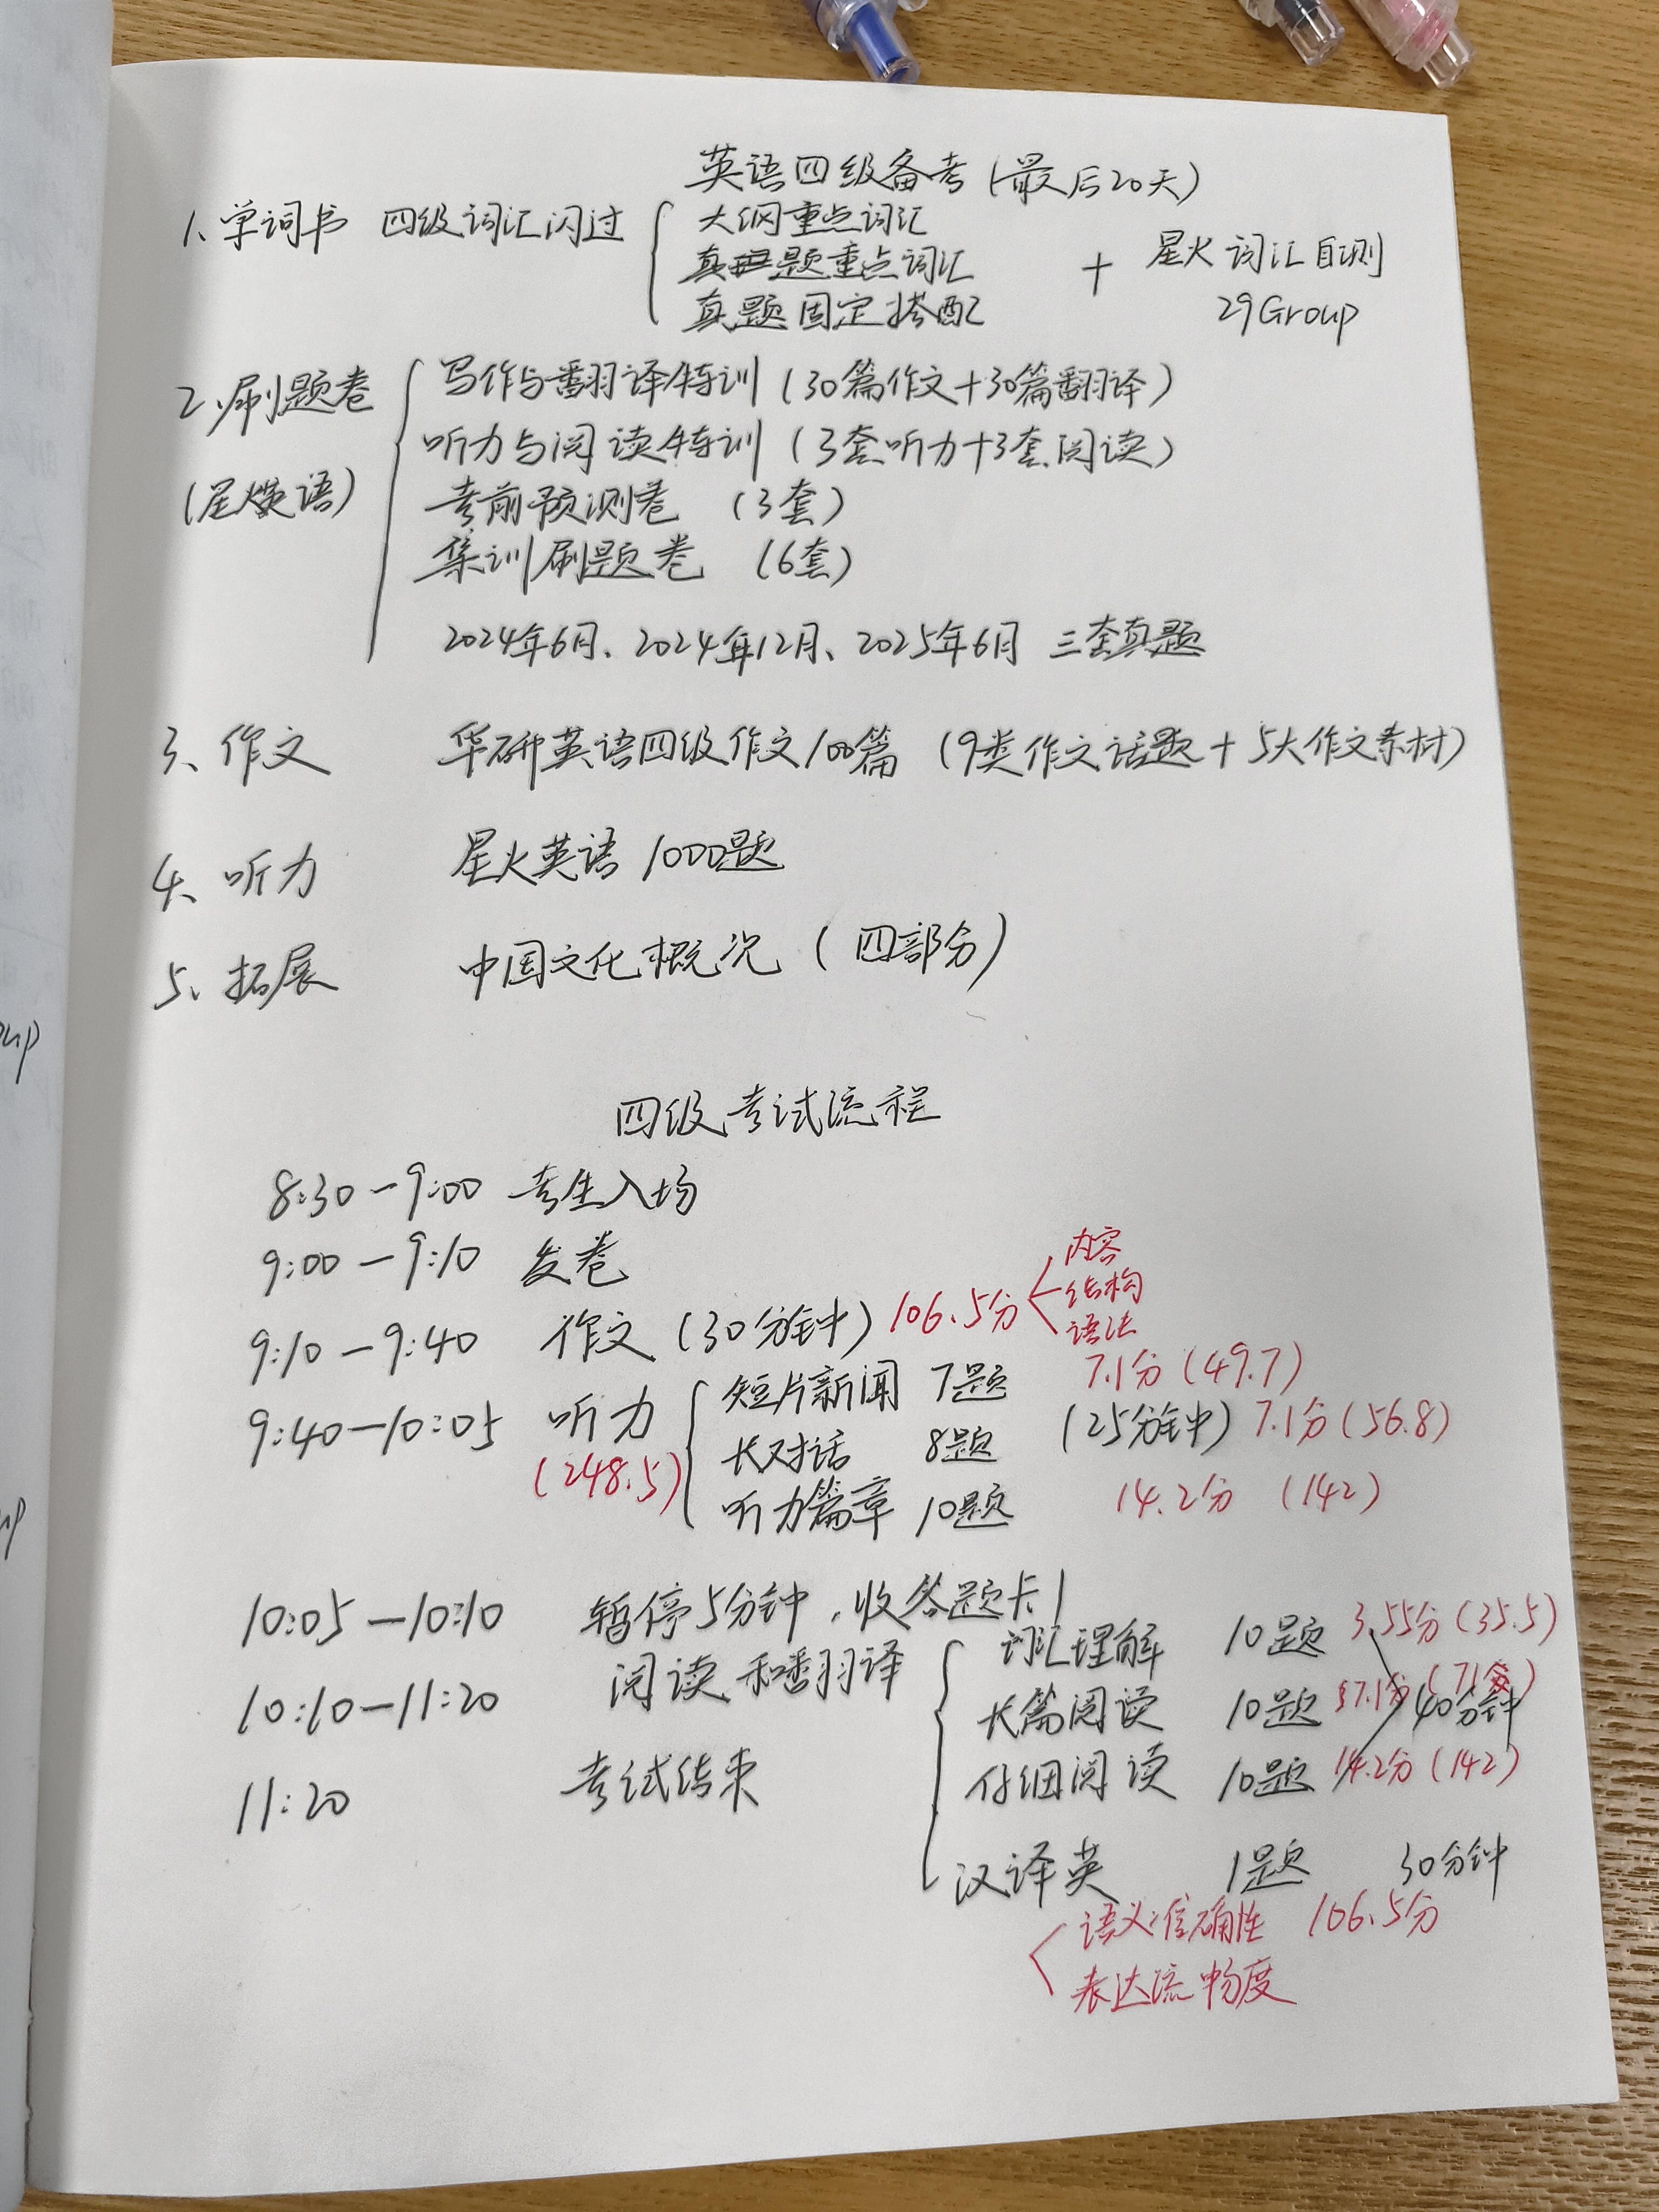 英语四级备考(最后20天)
1、单词书 四级词汇闪过 大纲重点词汇
真题重点词汇 + 星火词汇自测
真题固定搭配 29Group
2、刷题卷 写作与翻译特训 (30篇作文+30篇翻译)
听力与阅读特训 (3套听力+3套阅读)
(星火英语) 考前预测卷 (3套)
集训刷题卷 (6套)
2024年6月、2024年12月、2025年6月 三套真题
3、作文 华研英语四级作文100篇 (9类作文话题+5大作文素材)
4、听力 星火英语1000题
5、拓展 中国文化概况 (四部分)
四级考试流程
8:30-9:00 考生入场
9:00-9:10 发卷
内容
9:10-9:40 作文(30分钟) 106.5分 结构
语法
短片新闻 7题 7.1分(49.7)
9:40-10:05 听力 长对话 8题 (25分钟) 7.1分(56.8)
(248.5) 听力篇章 10题 14.2分 (142)
10:05-10:10 暂停5分钟,收答题卡1
词汇理解 10题 3.55分(35.5)
10:10-11:20 阅读和翻译 长篇阅读 10题 7.1分(71) 40分钟
11:20 考试结束 仔细阅读 10题 14.2分(142)
汉译英 1题 30分钟
语义准确性 106.5分
表达流畅度
up
up